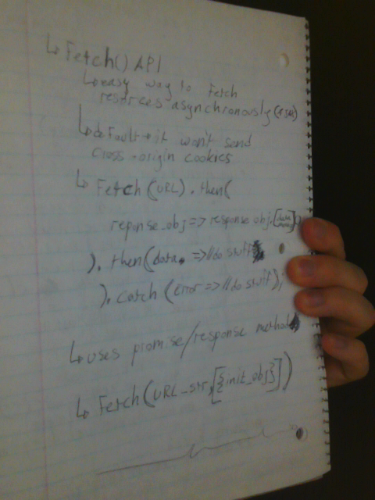 ↳ Fetch() API
↳ easy way to fetch
resources asynchronously
↳ default → it won't send
cross-origin cookies
↳ Fetch (URL) . then (
reponse_obj => response_obj.
). then (data => // do stuff
). catch (error => // do stuff);
↳ uses promise/response methods
↳ Fetch (URL_str, [{init_obj}])